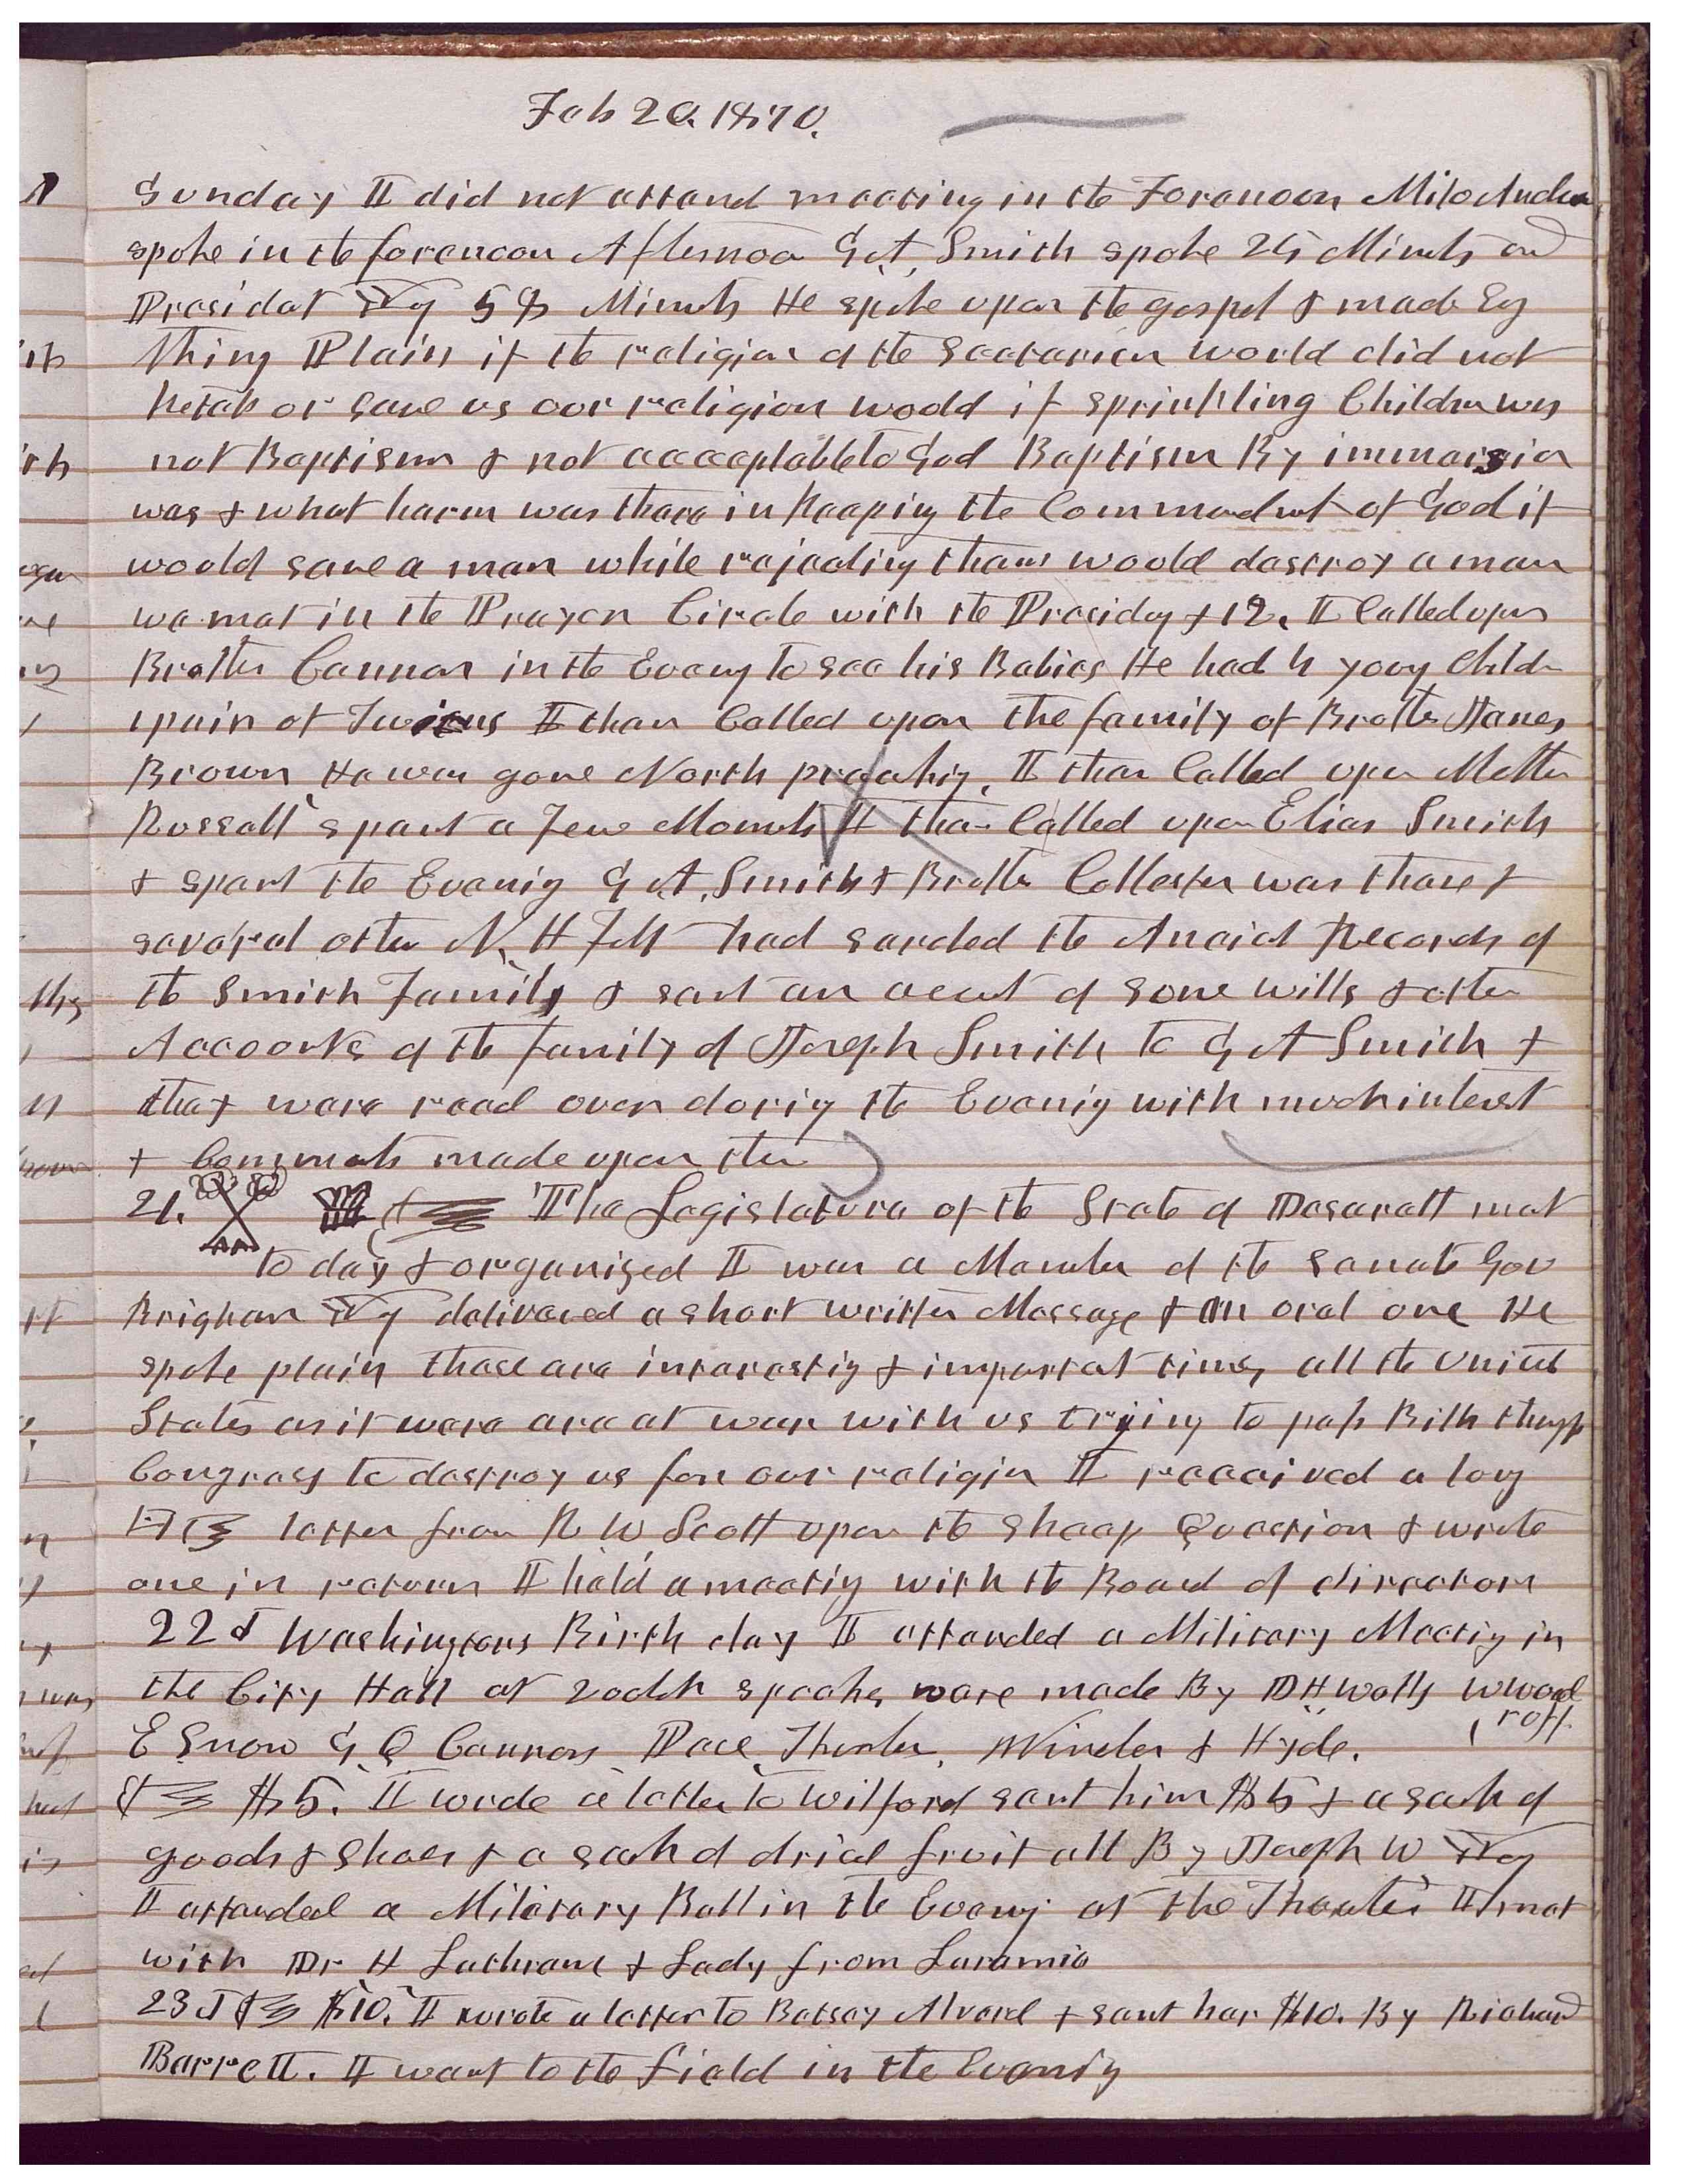 Feb 20. 1870.
Sunday I did not attend meeting in the Forenoon Milo Andrus
spoke in the forenoon Afternoon G. A. Smith spoke 25 Minuts and
Presidet Yg 58 Minuts He spoke upon the gospel & made Evry
thing Plain if the religion of the Sectarian world did not
or save us our religion would if sprinkling Childrn was
not Baptism & not acceptable to God Baptism By immersion
was & what harm was there in keeping the Commandmet of God it
would save a man while rejecting them would destroy a man
we met in the Prayer Circle with the Presidcy & 12. I Called upon
Brother Cannon in the Evenig to see his Babies He had 4 young Childn
1 pair of Twins I then Called upon the family of Brother James
Brown He was gone North preaching. I then Called upon Mother
Russell spent a few Moments I then Called upon Elias Smith
& spent the Evenig G. A. Smith & Brother Collester was there &
several other N. H Felt had sarched the Anciet Records of
the Smith Family & sent an acout of some wills & other
Accounts of the family of Joseph Smith to G A Smith &
they were read over during the Evenig with much interest
& Comments made upon them
21. The Legislature of the State of Desarett met
to day & organized I was a Member of the Senate Gov
Brigham Yg delivered a short written Message & an oral one He
spoke plain these are interestig & importat times all the United
States as it were are at war with us trying to pass Bills through
Congress to destroy us for our religin I received a long
letter from R W Scott upon the sheep Question & wrote
one in return I held a meetig with the Board of directors
22d Washingtons Birth day I attended a Military Meetig in
the City Hall at 2 oclok speches were made By D H Wells W Wood
ruff
E Snow G. Q Cannon Pace Thurber, Winder & Hyde.
$5. I wrote a letter to Wilford sent him $5 & a sack of
goods & Shoes & a sack of dried fruit all By Joseph W Yg
I attended a Military Ball in the Evenig at the Theater I met
with Dr H Lathram & Lady from Laramie
23d $10. I wrote a letter to Betsey Alvord & sent her $10. By Richard
Barrett. I went to the field in the Evenig